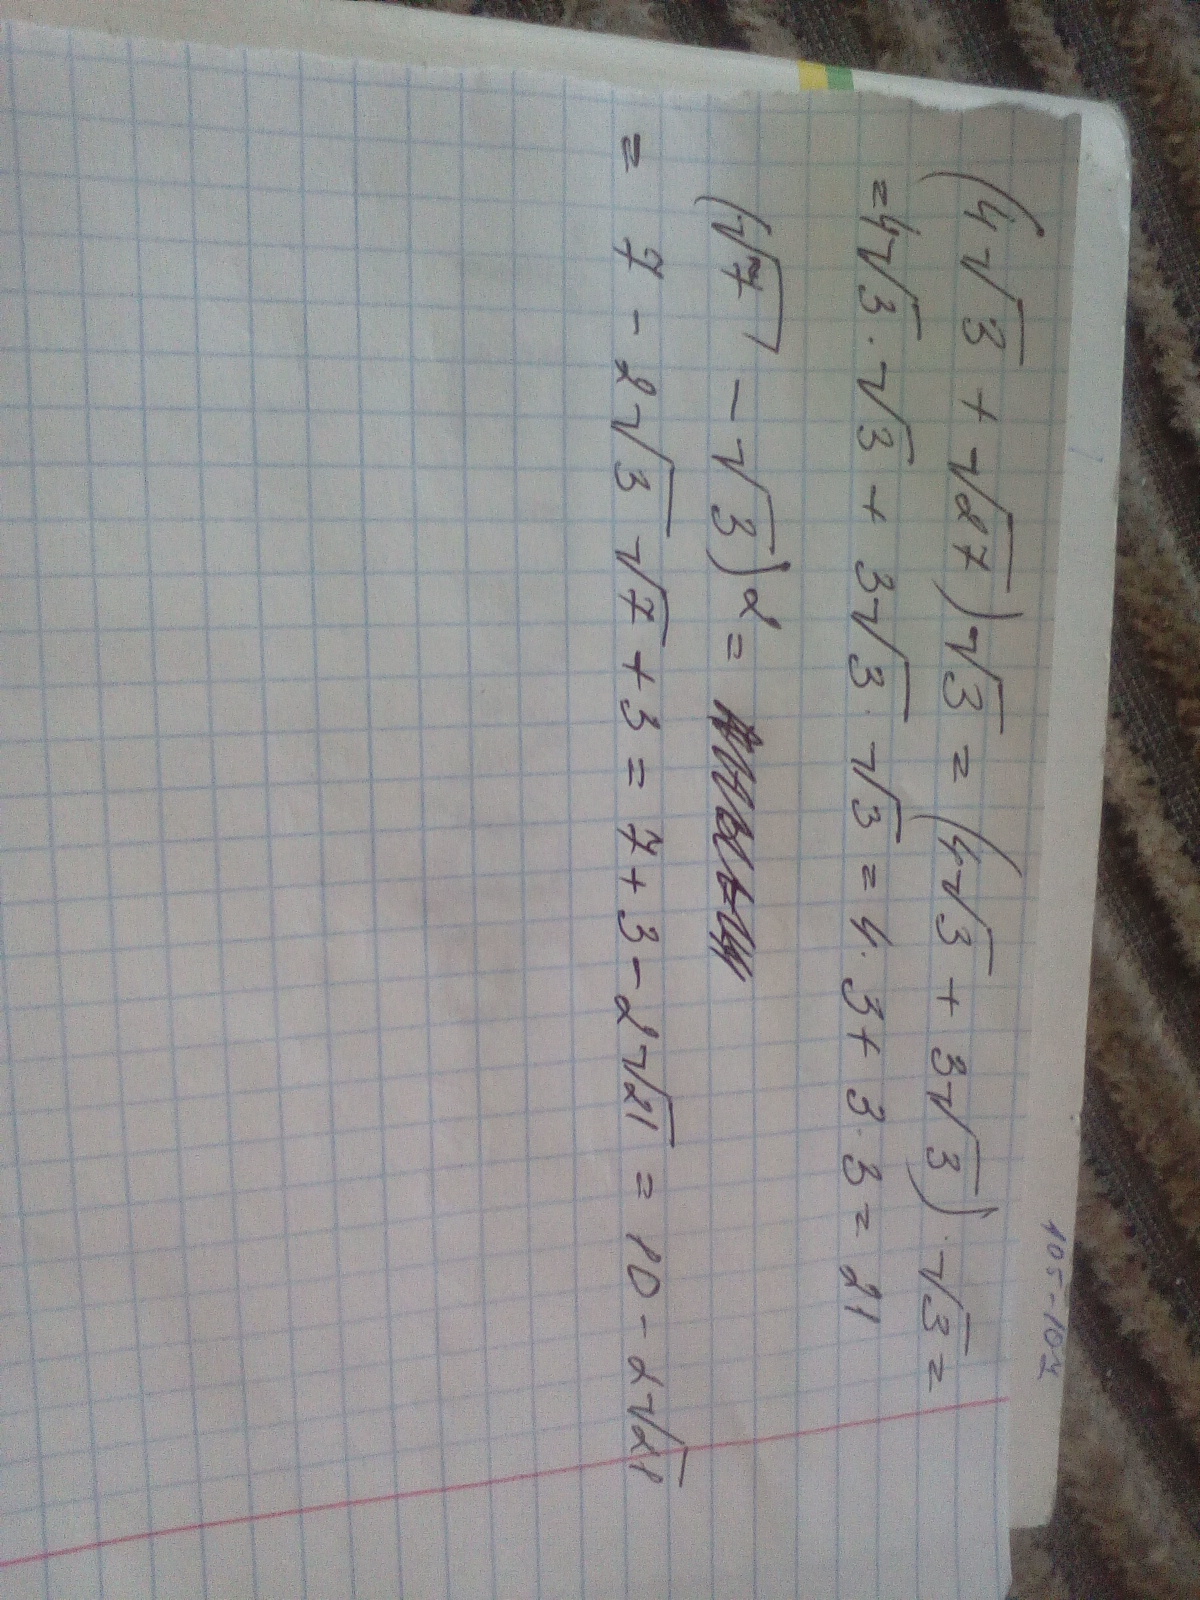 105-104
(4√3 + √27)√3 = (4√3 + 3√3)·√3 =
=4√3·√3 + 3√3·√3 = 4·3 + 3·3 = 21
(√7 - √3)² =
= 7 - 2√3 √7 + 3 = 7 + 3 - 2√21 = 10 - 2√21